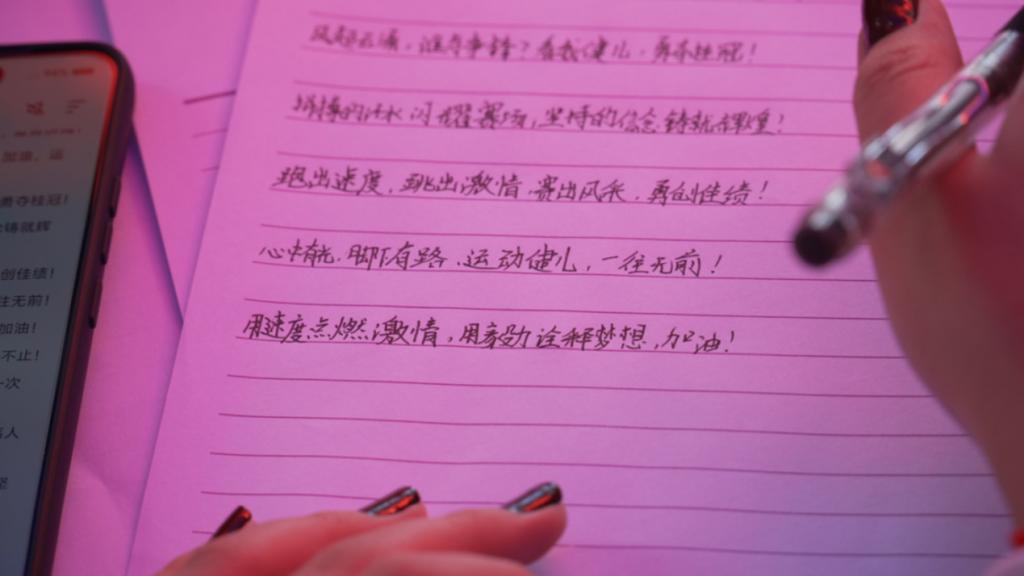 风起云涌，谁与争锋？看我健儿，勇夺桂冠！
拼搏的汗水闪耀赛场，坚持的信念铸就辉煌！
跑出速度，跳出激情，赛出风采，勇创佳绩！
心中有光，脚下有路，运动健儿，一往无前！
用速度点燃激情，用毅力诠释梦想，加油！
加油，运
勇夺桂冠！
铸就辉
创佳绩！
往无前！
加油！
不止！
一次
人